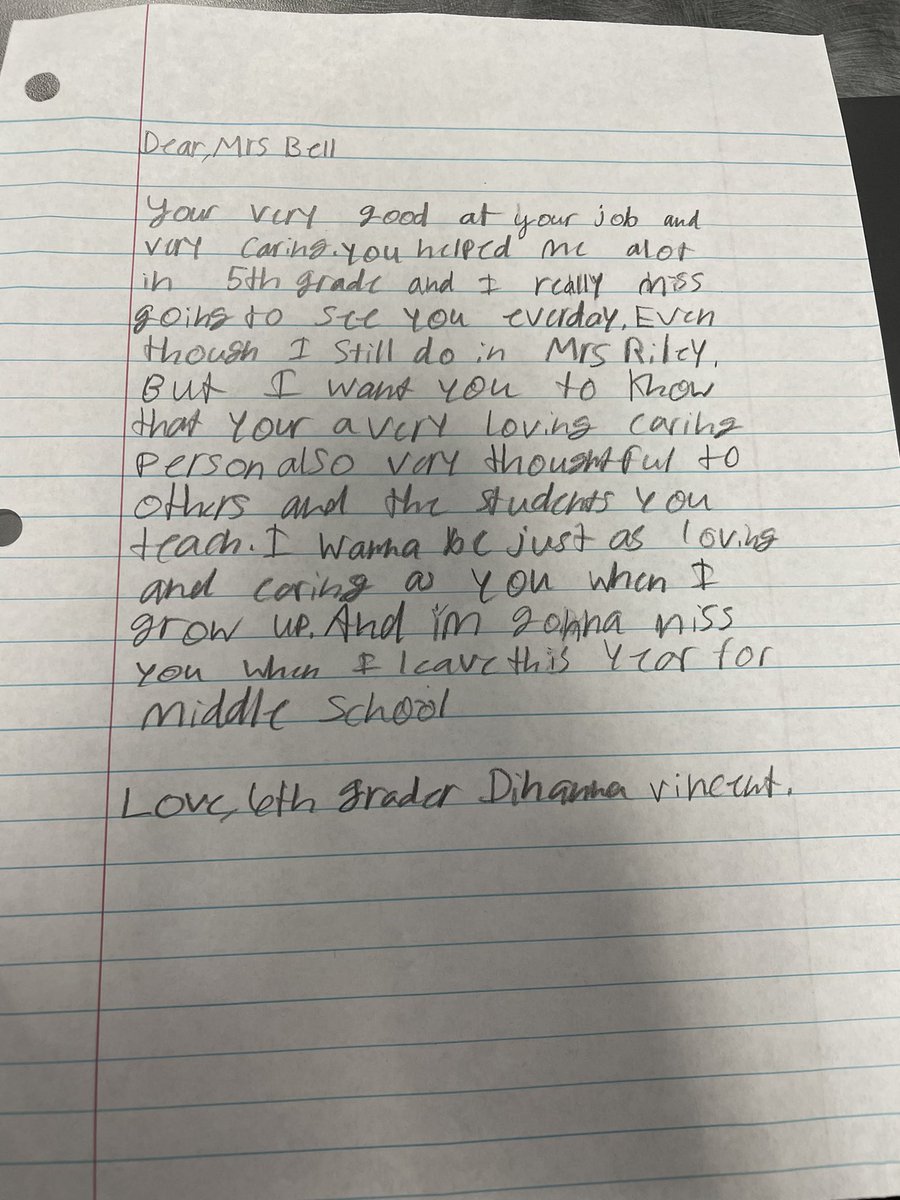 Dear, Mrs Bell
Your very good at your job and
very caring. you helped me alot
in 5th grade and I really miss
going to see you everday. Even
though I still do in Mrs Riley.
But I want you to know
that your a very loving caring
person also very thoughtful to
others and the students you
teach. I wanna be just as loving
and caring as you when I
grow up. And i'm gonna miss
you when I leave this year for
middle school
Love, 6th grader Dihanna vincent.